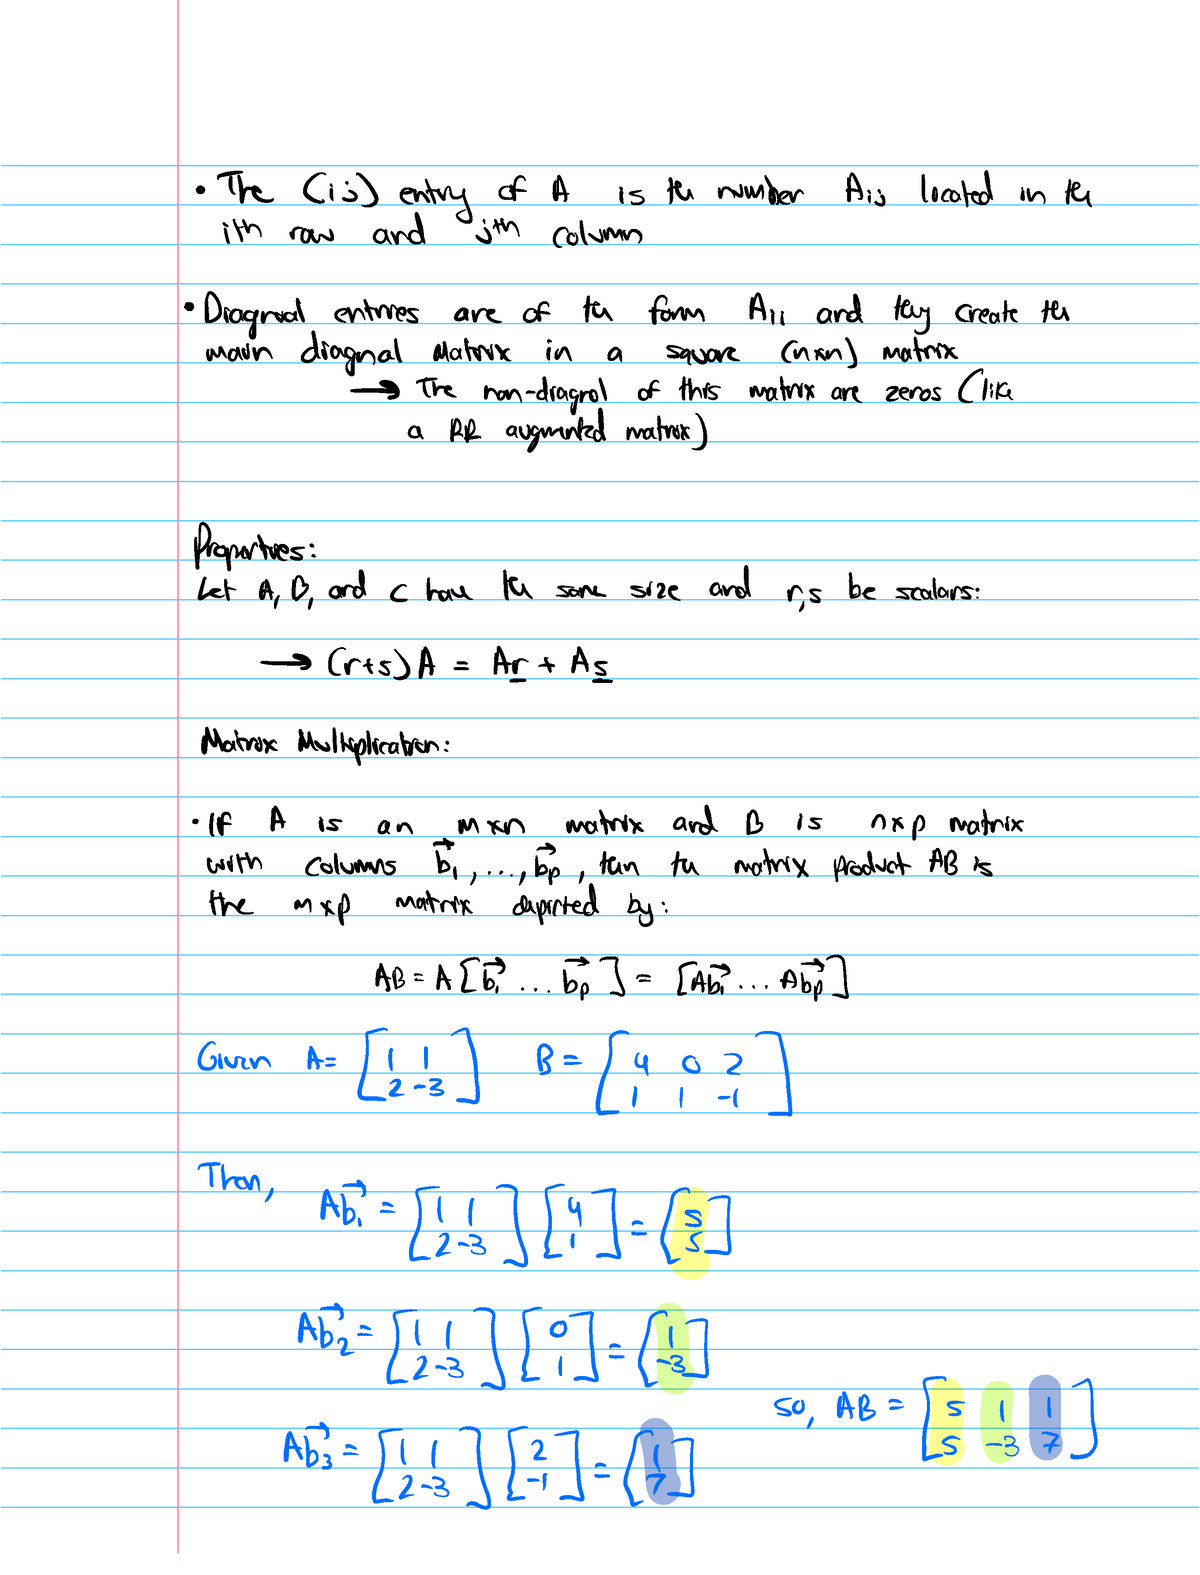 • The (ij) entry of A is the number Aij located in the
ith row and jth column
• Diagnoal entries are of the form Aii and they create the
main diagnal Matrix in a square (nxn) matrix
→ The non-diagnol of this matrix are zeros (like
a RR augmented matrix)
Properties:
Let A, B, and C have the same size and r,s be scalars:
→ (r+s)A = Ar + As
Matrix Multiplication:
• If A is an mxn matrix and B is nxp matrix
with columns b⃗₁, ..., b⃗p, then the matrix product AB is
the mxp matrix depicted by:
AB = A [b⃗₁ ... b⃗p] = [Ab⃗₁ ... Ab⃗p]
Given A= [1 1 B = [4 0 2
2 -3] 1 1 -1]
Then,
Ab⃗₁ = [1 1 [4 = [5
2 -3] 1] 5]
Ab⃗₂ = [1 1 [0 = [1
2 -3] 1] -3]
Ab⃗₃ = [1 1 [2 = [1
2 -3] -1] 7]
so, AB = [5 1 1
5 -3 7]